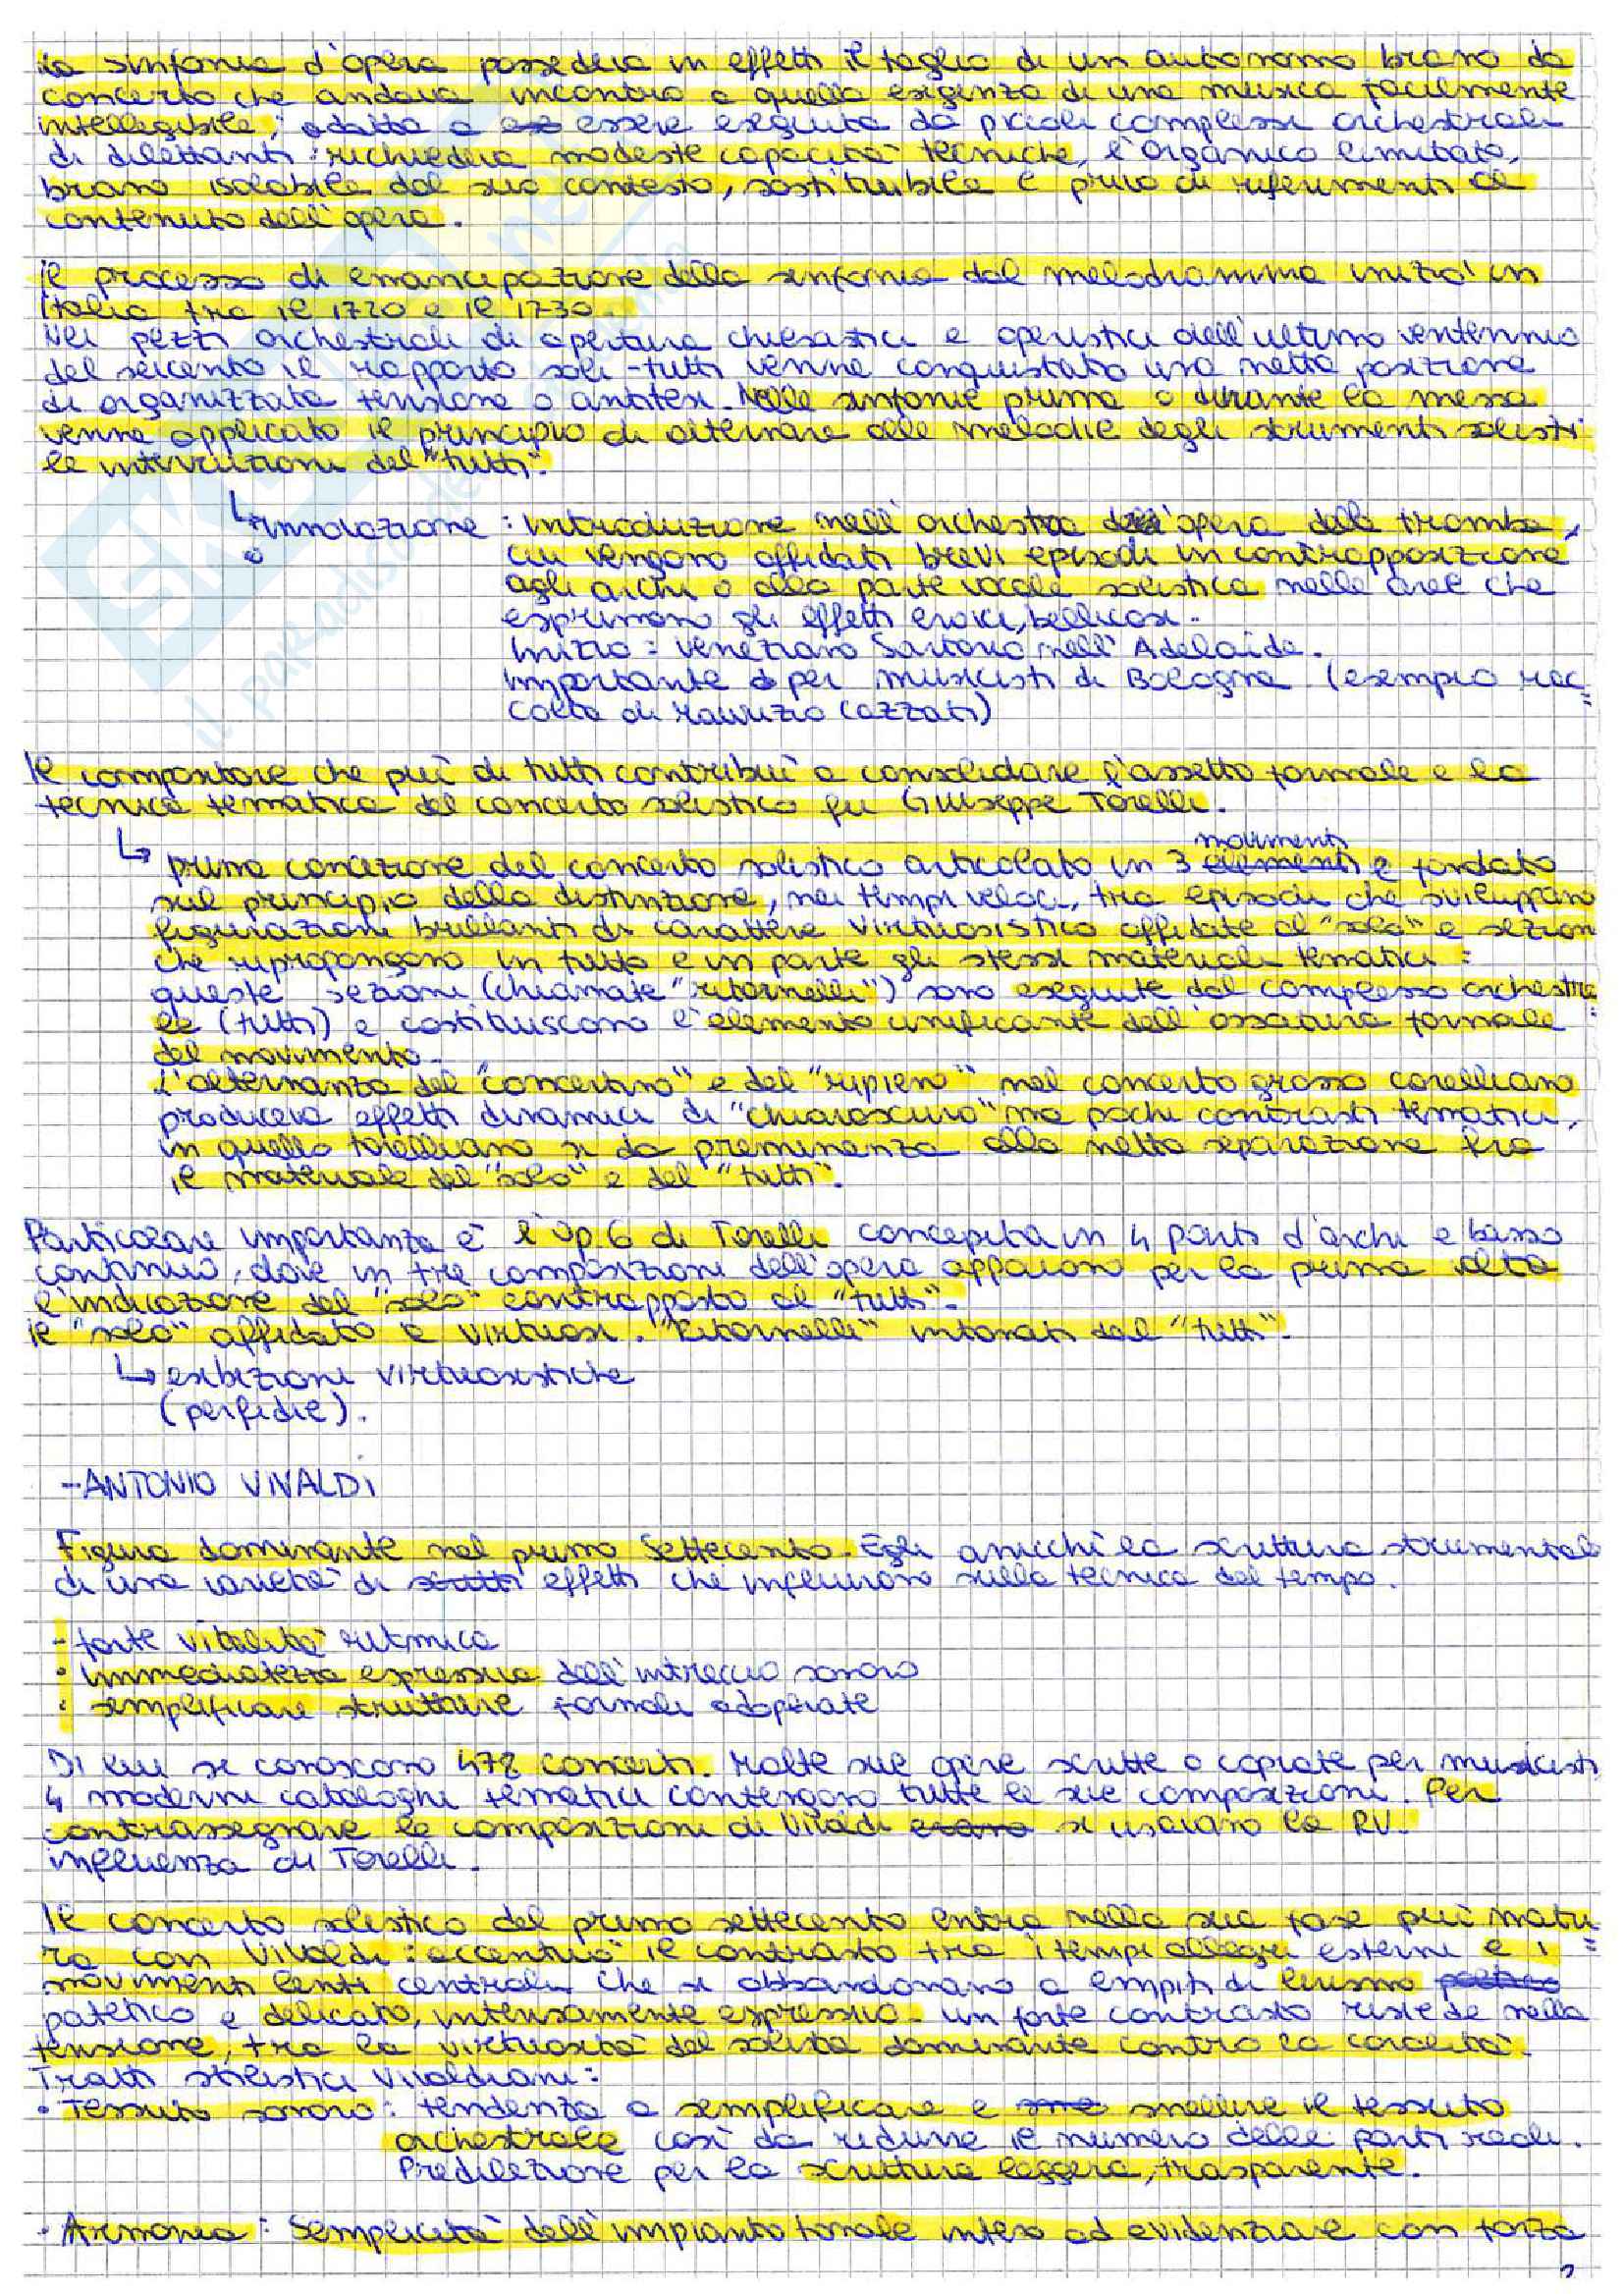 La sinfonia d'opera possedeva in effetti il taglio di un autonomo brano da
concerto che andava incontro a quella esigenza di una musica facilmente
intellegibile, adatta a essere eseguita da piccoli complessi orchestrali
di dilettanti: richiedeva modeste capacità tecniche, l'organico limitato,
brano isolabile dal suo contesto, sostituibile e privo di riferimenti al
contenuto dell'opera.
Il processo di emancipazione della sinfonia dal melodramma iniziò in
Italia tra il 1720 e il 1730.
Nei pezzi orchestrali di apertura chiesastici e operistici dell'ultimo ventennio
del seicento il rapporto soli-tutti venne conquistato una netta posizione
di organizzata tensione o antitesi. Nelle sinfonie prima o durante la messa
venne applicato il principio di alternare alle melodie degli strumenti solisti
le interruzioni del "tutti".
↳ innovazione: introduzione nell'orchestra dell'opera della tromba,
cui vengono affidati brevi episodi in contrapposizione
agli archi o alla parte vocale solistica nelle aree che
esprimono gli effetti eroici, bellicosi.
Inizio: veneziano Sartorio nell'Adelaide.
Importante per musicisti di Bologna (esempio rac=
colta di Maurizio Cazzati)
Il compositore che più di tutti contribuì a consolidare l'assetto formale e la
tecnica tematica del concerto solistico fu Giuseppe Torelli.
movimenti
↳ prima concezione del concerto solistico articolato in 3 elementi e fondato
sul principio della distinzione, nei tempi veloci, tra episodi che sviluppano
figurazioni brillanti di carattere virtuosistico affidate al "solo" e sezioni
che ripropongono in tutto e in parte gli stessi materiali tematici:
queste sezioni (chiamate "ritornelli") sono eseguite dal complesso orchestra
le (tutti) e costituiscono l'elemento unificante dell'ossatura formale
del movimento.
L'alternanza del "concertino" e del "ripieno" nel concerto grosso corelliano
produceva effetti dinamici di "chiaroscuro" ma pochi contrasti tematici,
in quello torelliano si da preminenza alla netta separazione fra
il materiale del "solo" e del "tutti".
Particolare importanza è l'op.6 di Torelli concepita in 4 parti d'archi e basso
continuo, dove in tre composizioni dell'opera appaiono per la prima volta
l'indicazione del "solo" contrapposto al "tutti".
Il "solo" affidato a virtuosi. "Ritornelli" intonati dal "tutti".
↳ esibizioni virtuosistiche
(perfidie).
-ANTONIO VIVALDI
Figura dominante nel primo Settecento. Egli arricchì la scrittura strumentale
di una varietà di effetti che influirono sulla tecnica del tempo.
- forte vitalità ritmica
• immediatezza espressiva dell'intreccio sonoro
• semplificare strutture formali adoperate
Di lui si conoscono 478 concerti. Molte sue opere scritte o copiate per musicisti
4 moderni cataloghi tematici contengono tutte le sue composizioni. Per
contrassegnare le composizioni di Vivaldi si usavano la RV.
influenza di Torelli.
Il concerto solistico del primo settecento entra nella sua fase più matu=
ra con Vivaldi: accentuò il contrasto tra i tempi allegri esterni e i
movimenti lenti centrali che si abbandonano a empiti di lirismo
patetico e delicato, intensamente espressivo. un forte contrasto risiede nella
tensione, tra la virtuosità del solista dominante contro la coralità.
Tratti stilistici vivaldiani:
• Tessuto sonoro: tendenza a semplificare e snellire il tessuto
orchestrale così da ridurre il numero delle parti reali.
Predilezione per la scrittura leggera, trasparente.
- Armonia: Semplicità dell'impianto tonale inteso ad evidenziare con forza